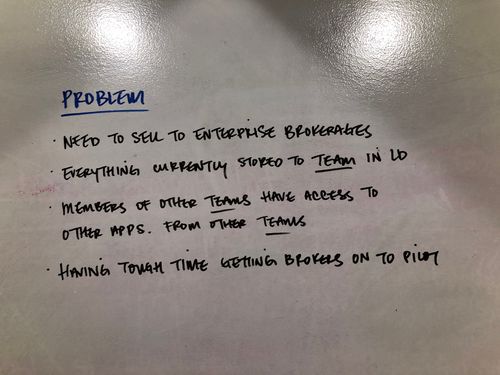 PROBLEM
· NEED TO SELL TO ENTERPRISE BROKERAGES
· EVERYTHING CURRENTLY STORED TO TEAM IN LD
· MEMBERS OF OTHER TEAMS HAVE ACCESS TO
OTHER APPS. FROM OTHER TEAMS
· HAVING TOUGH TIME GETTING BROKERS ON TO PILOT